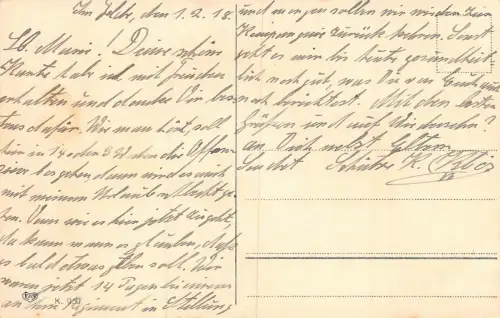 Im Felde, den 1.2.18.
Lb. Mimi! Deine schöne
Karte habe ich mit Freuden
erhalten und danke Dir bes
tens dafür. Wie man hört, soll
hier in 14 oder 3 W. die Offen
sive losgehen, dann wird es auch
mit meinem Urlaub schlecht ge
hen. Denn wie es hier jetzt zugeht,
da kann man es glauben, daß
es bald etwas geben soll. Wir
waren jetzt 14 Tage bei
an dem Regiment in Stellung
K. 050
und morgen sollen wir wieder zur
Kompagnie zurück kehren. Sonst
geht es mir bis heute gesundheit
lich noch gut, was Du von Euch auch
noch berichtest. Mit den besten
Grüßen und auf Wiedersehn!
an Dich nebst Eltern
Sendet Schütze K.